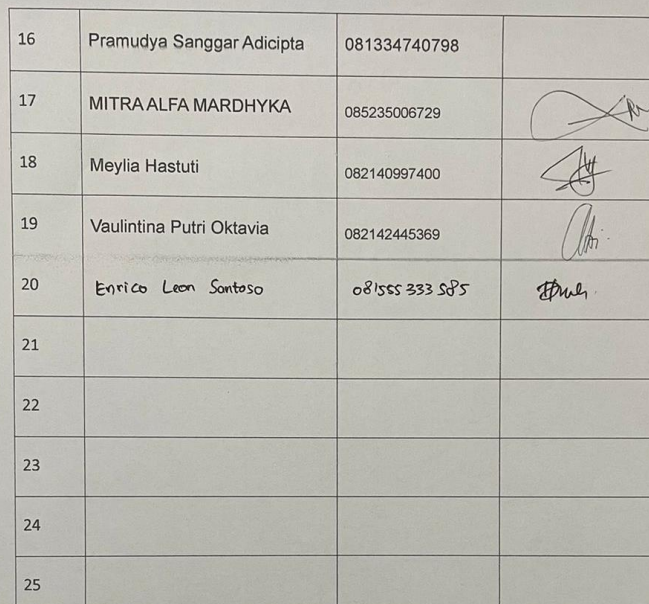 16 Pramudya Sanggar Adicipta 081334740798
17 MITRA ALFA MARDHYKA 085235006729
18 Meylia Hastuti 082140997400
19 Vaulintina Putri Oktavia 082142445369
20 Enrico Leon Santoso 081555 333 585
21
22
23
24
25